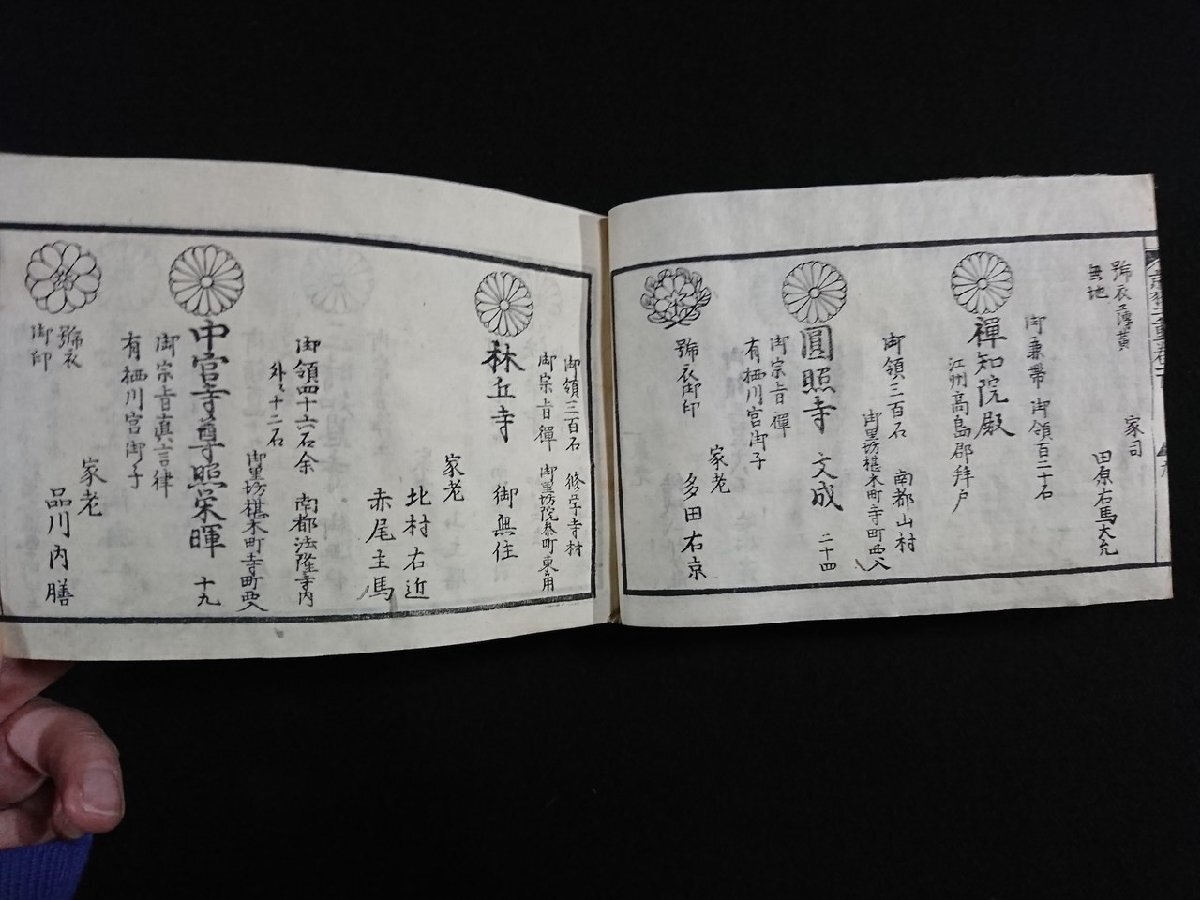 號衣薄黄
無地
家司
田原右馬大允
御兼帶 御領百二十石
禪知院殿
江州高島郡拜戸
御領三百石 南都山村
御里坊椹木町寺町西入
圓照寺 文成 二十四
御宗旨禪
有栖川宮御子
號衣御印
家老
多田右京
御領三百石 修学寺村
御宗旨禪 御里坊院参町東角
林丘寺 御無住
家老
北村右近
赤尾主馬
御領四十六石余 南都法隆寺内
外ニ十二石
御里坊椹木町寺町西入
中宮寺尊照栄暉 十九
御宗旨真言律
有栖川宮御子
號衣
御印
家老
品川内膳